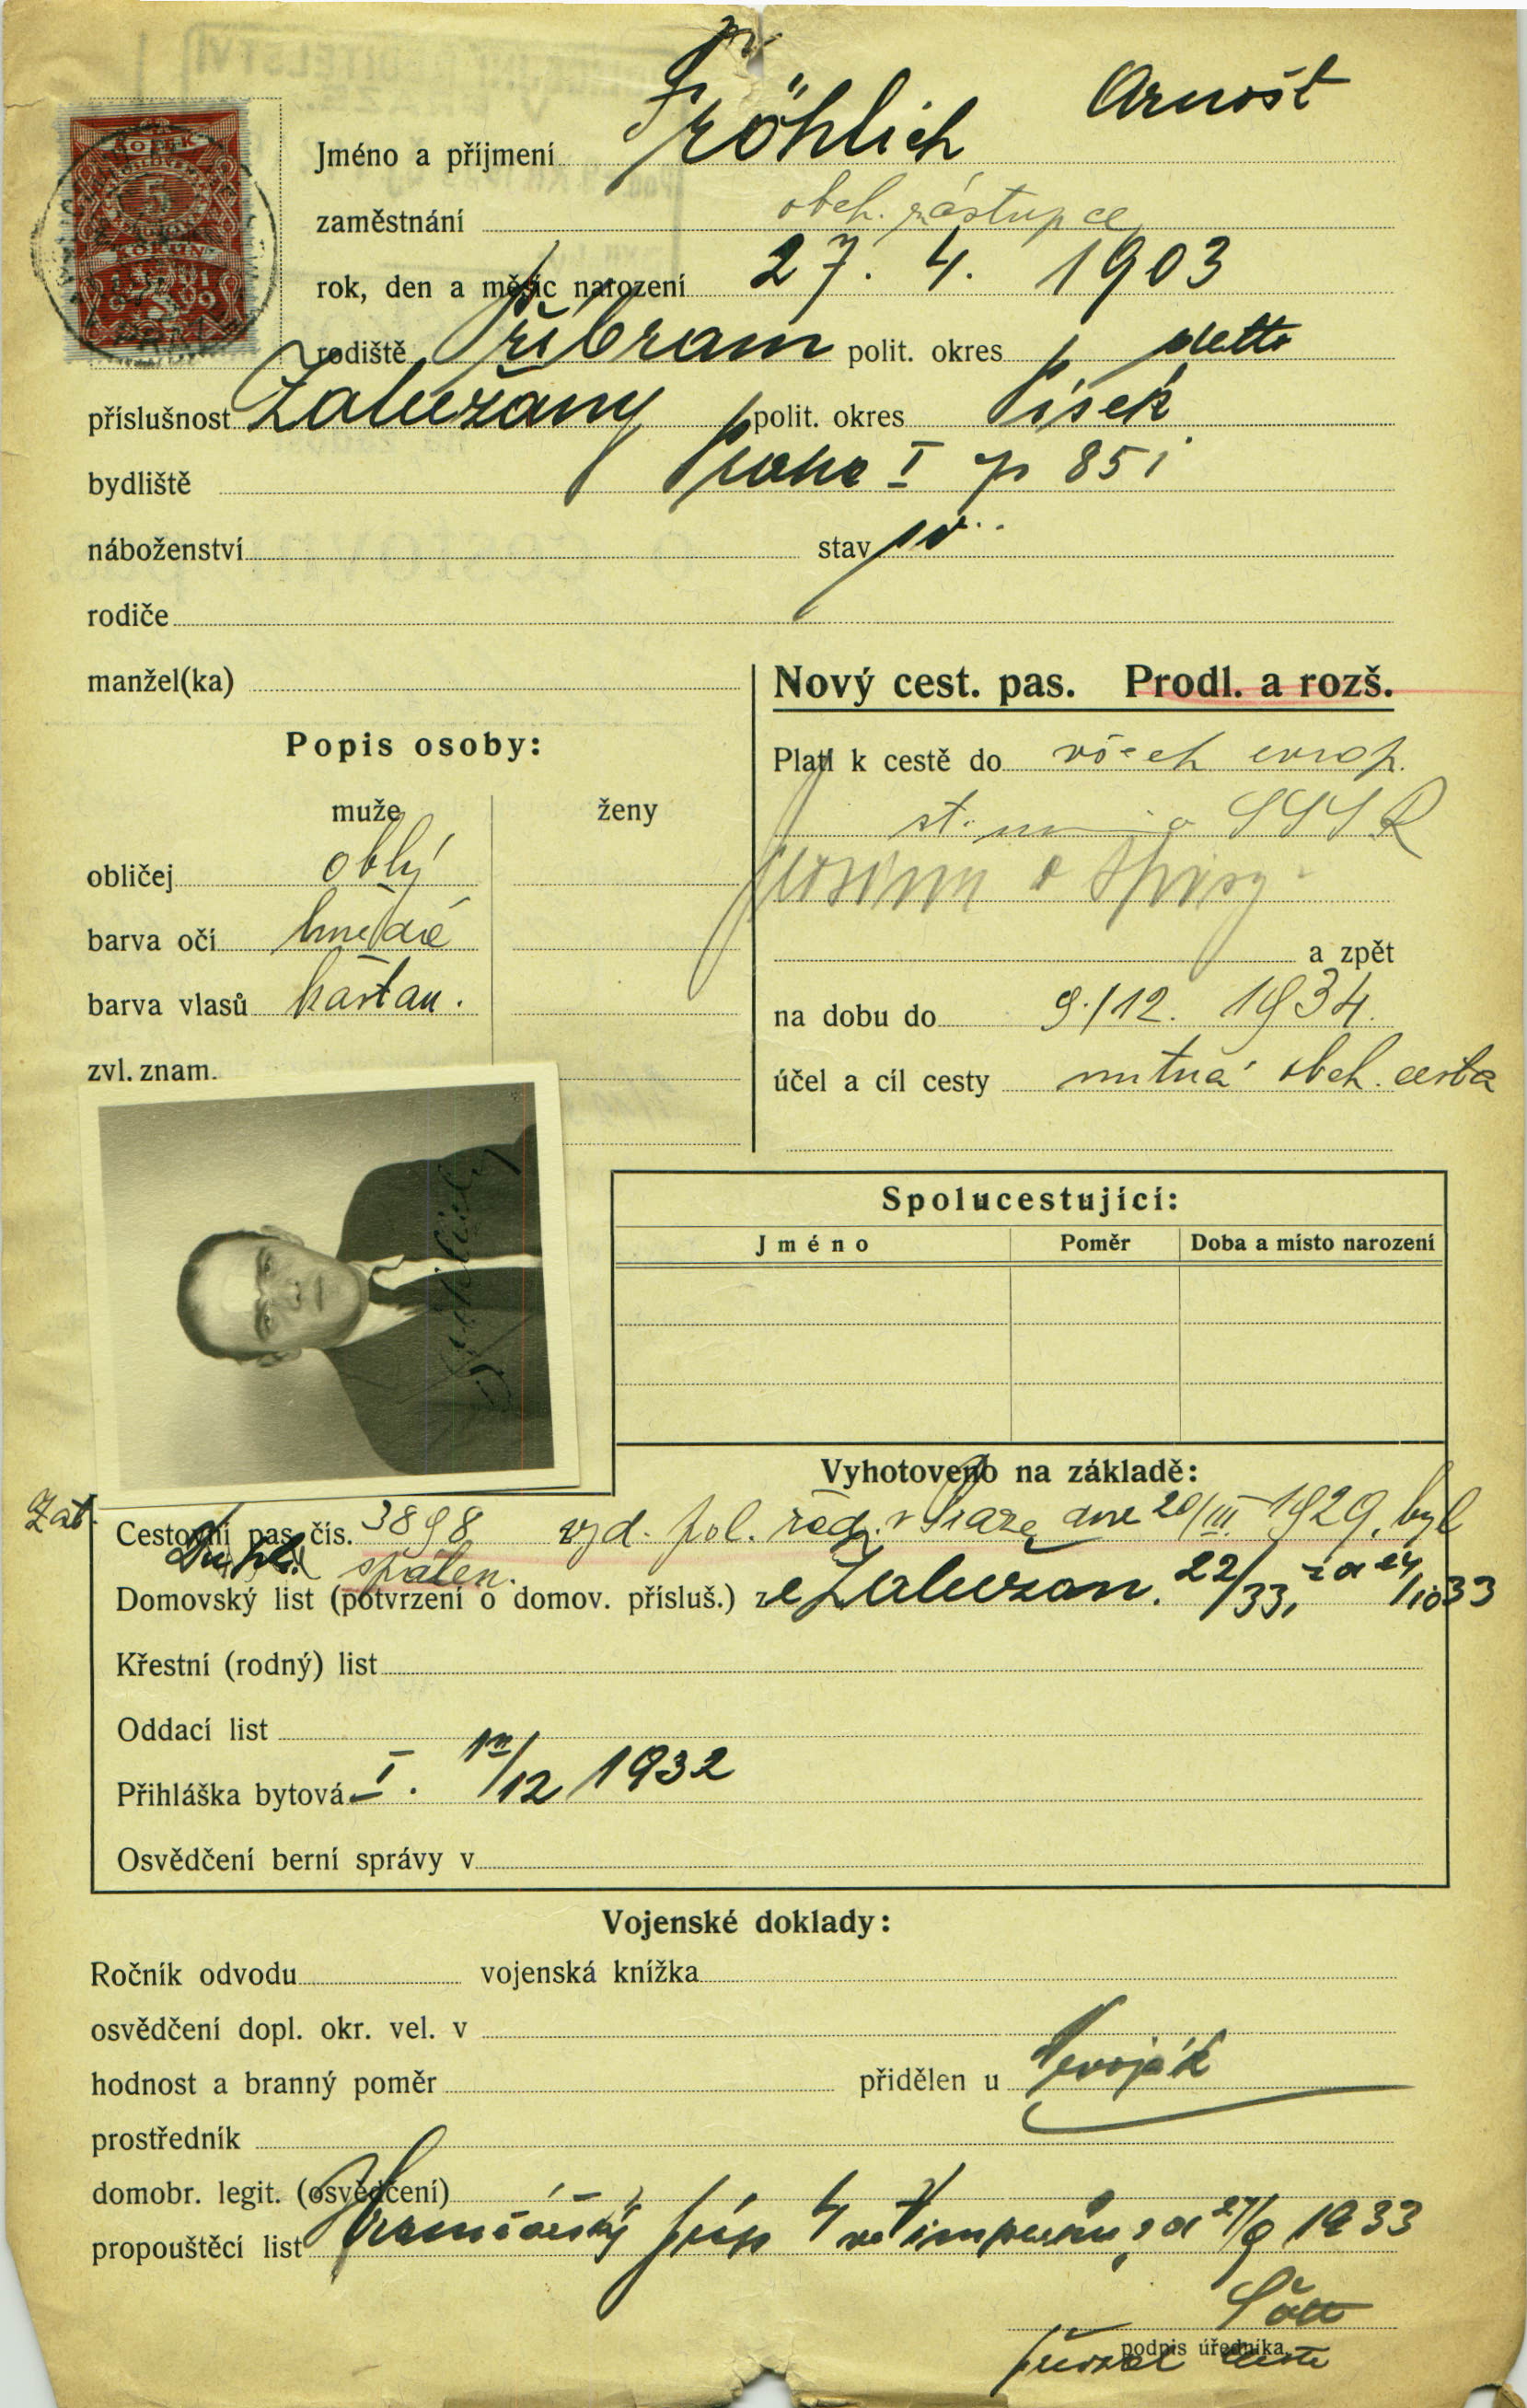 Fröhlich Arnošt
Jméno a příjmení
zaměstnání obch. zástupce
rok, den a měsíc narození 27. 4. 1903
rodiště Příbram polit. okres detto
příslušnost Zalužany polit. okres Písek
bydliště Praha I čp 851
náboženství stav sv.
rodiče
manžel(ka)
Nový cest. pas. Prodl. a rozš.
Popis osoby:
Platí k cestě do všech evrop.
muže ženy
st. SSSR
obličej oblý
barva očí hnědé
a zpět
barva vlasů kaštan.
na dobu do 9./12. 1934.
zvl. znam.
účel a cíl cesty nutná obch. cesta
Spolucestující:
Jméno Poměr Doba a místo narození
Vyhotoveno na základě:
Cestovní pas čís. 3898 vyd. pol. řed. v Praze dne 20/III 1929, byl
spálen.
Domovský list (potvrzení o domov. přísluš.) ze Zalužan. 22/33, za 24/10 33
Křestní (rodný) list
Oddací list
Přihláška bytová I. /12 1932
Osvědčení berní správy v
Vojenské doklady:
Ročník odvodu vojenská knížka
osvědčení dopl. okr. vel. v
hodnost a branný poměr přidělen u Nevoják
prostředník
domobr. legit. (osvědčení)
propouštěcí list Hraničářský 4 ve Vimperku, za 27/9 1933
podpis úředníka